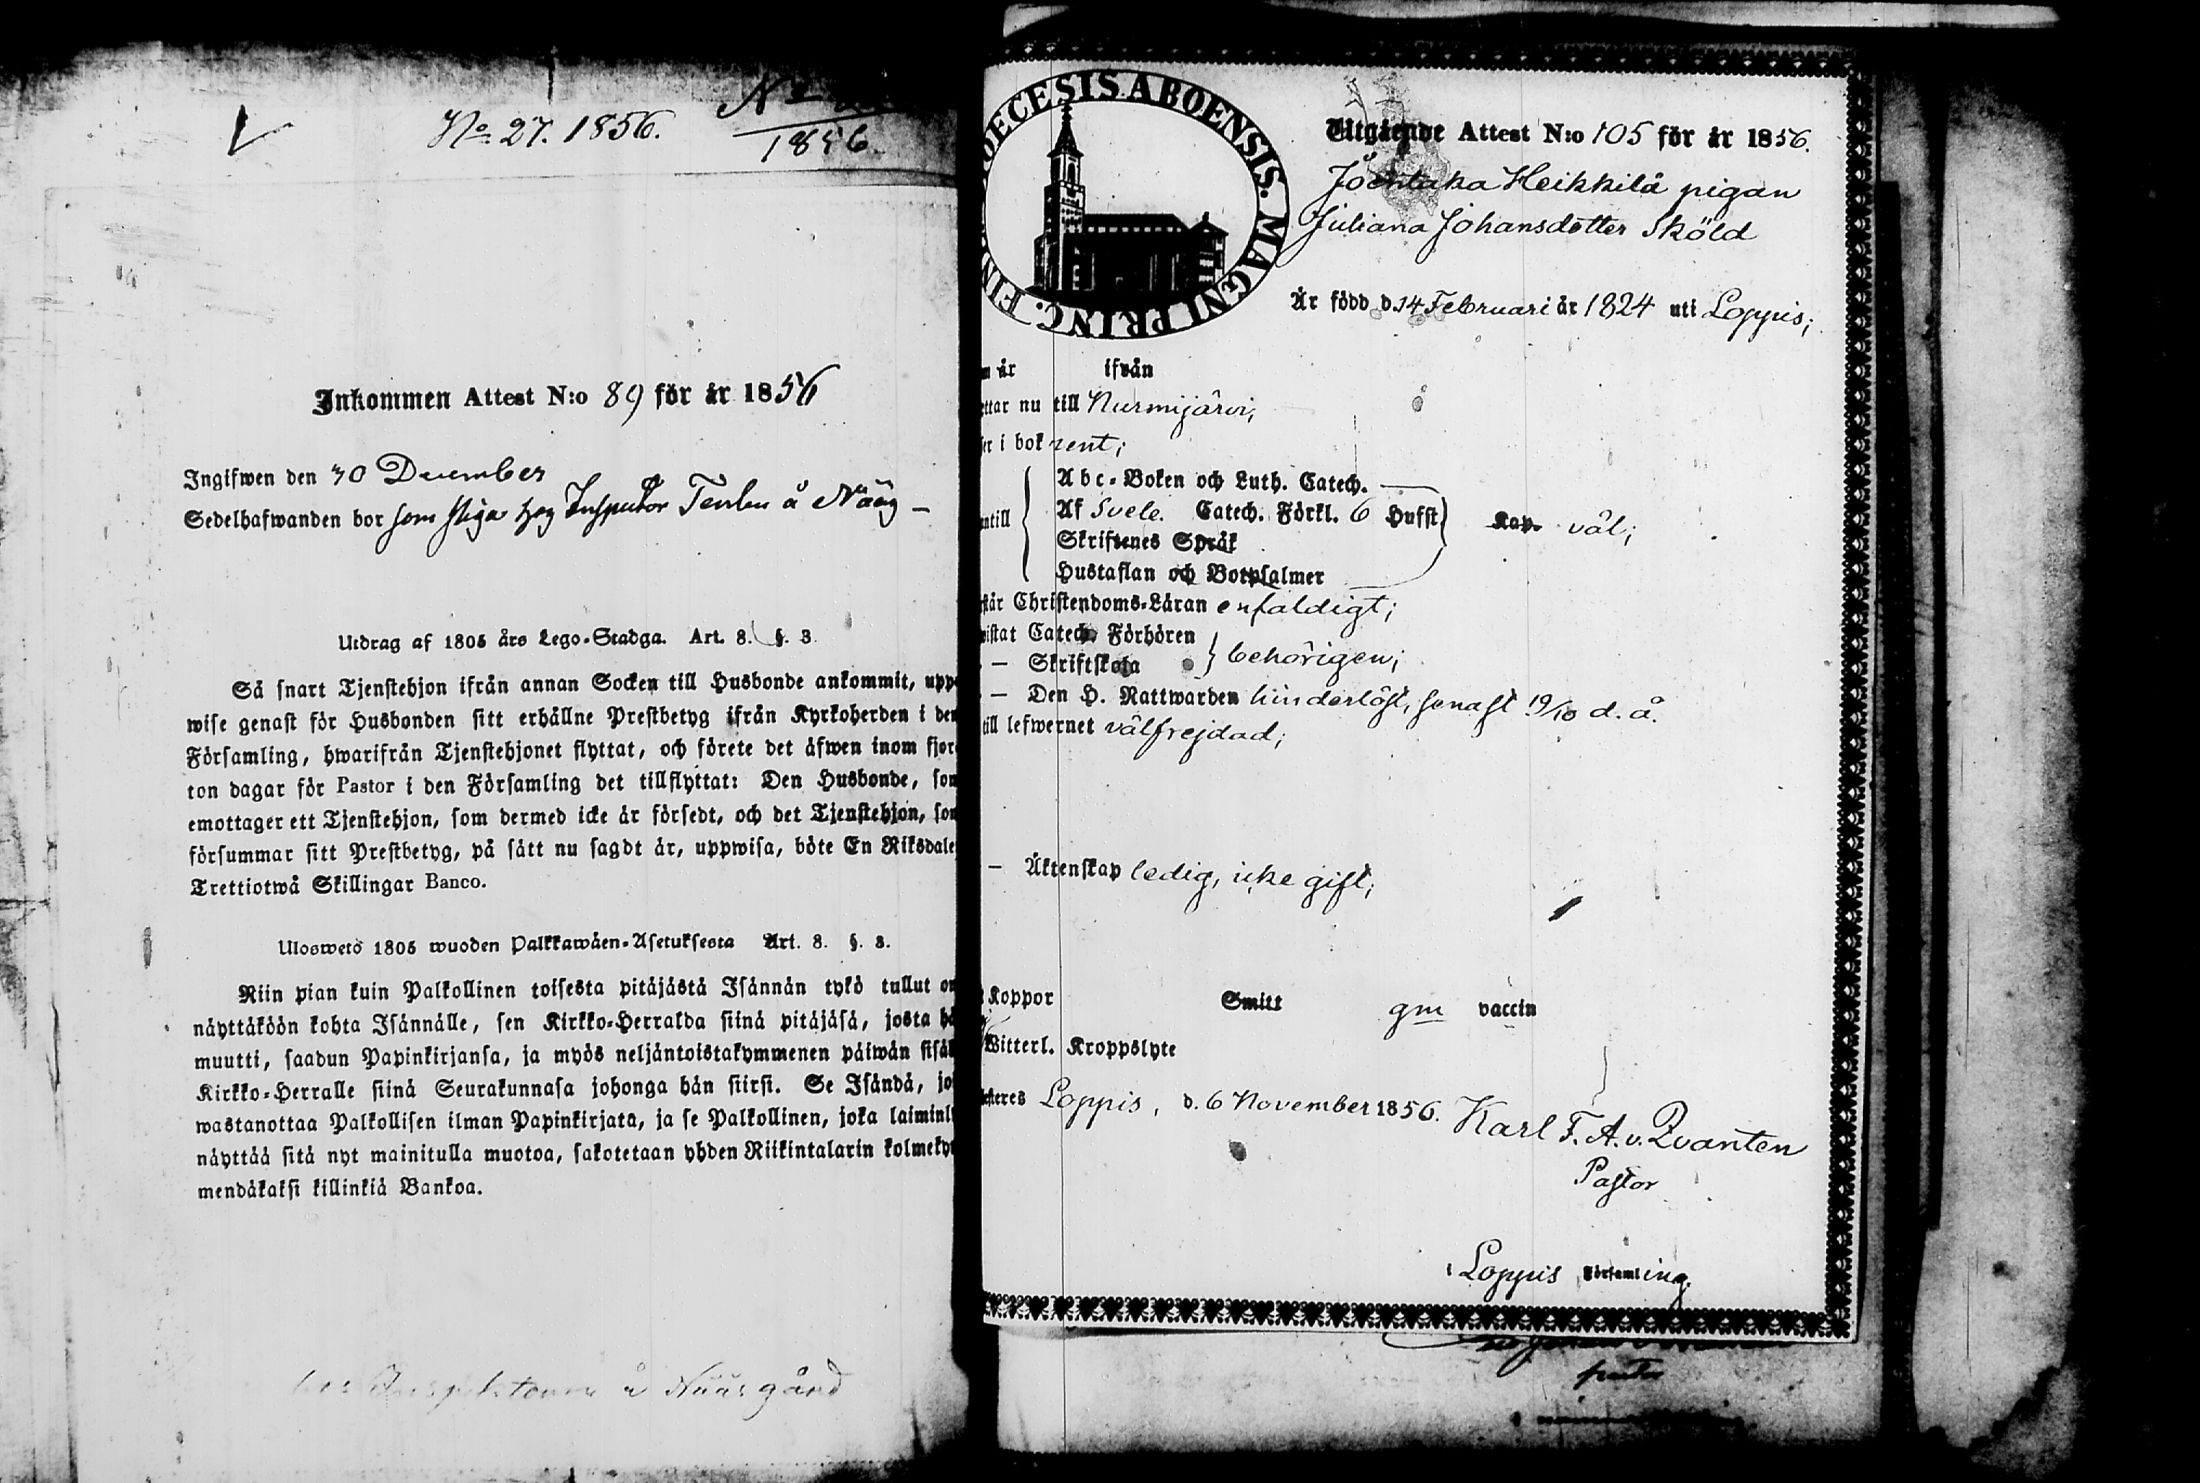 No 27. 1856.
No
1856.
Inkommen Attest N:o 89 för år 1856
Ingifwen den 30 December
Sedelhafwanden bor som piga hos Inspector å Nääs
Utdrag af 1805 års Lego-Stadga. Art. 8. §. 3.
Så snart Tjenstehjon ifrån annan Socken till Husbonde ankommit, upp
wise genast för Husbonden sitt erhållne Prestbetyg ifrån Kyrkoherden i den
Församling, hwarifrån Tjenstehjonet flyttat, och förete det äfwen inom fjor
ton dagar för Pastor i den Församling det tillflyttat: Den Husbonde, som
emottager ett Tjenstehjon, som dermed icke är försedt, och det Tjenstehjon, som
försummar sitt Prestbetyg, på sätt nu sagdt är, uppwisa, böte En Riksdaler
Trettiotwå Skillingar Banco.
Uloswetö 1805 wuoden Palkkawäen-Asetuksesta Art. 8. §. 3.
Niin pian kuin Palkollinen toisesta pitäjästä Isännän tykö tullut on
näyttäköön kohta Isännälle, sen Kirkko-Herralda siinä pitäjäsä, josta hä
muutti, saadun Papinkirjansa, ja myös neljäntoistakymmenen päiwän sisäl
Kirkko-Herralle siinä Seurakunnasa johonga hän siirsi. Se Isändä, jo
wastanottaa Palkollisen ilman Papinkirjata, ja se Palkollinen, joka laiminly
näyttää sitä nyt mainitulla muotoa, sakotetaan yhden Riikintalarin kolmeky
mendäkaksi killinkiä Bankoa.
Inspektoren å Nääs gård
DECESIS ABOENSIS. MAGNI PRINC. FIN
Utgående Attest N:o 105 för år 1856.
Heikkilä pigan
Juliana Johansdotter Sköld
År född d. 14 Februari år 1824 uti Loppis;
år ifrån
ttar nu till Nurmijärvi;
er i bok rent;
Abc-Boken och Luth. Catech.
ntill Af Svele. Catech. Förkl. 6 Hufst Kap. väl;
Skriftenes Språk
Hustaflan och Botpsalmer
står Christendoms-Läran enfaldigt;
wistat Catech. Förhören
— Skriftskola behörigen;
— Den H. Nattwarden hinderlöst, senast 19/10 d. å.
till lefwernet välfrejdad;
— Äktenskap ledig, icke gift;
Koppor Smitt gm vaccin
Witterl. Kroppslyte
esteres Loppis, d. 6 November 1856. Karl F. A. v. Qvanten
Pastor
i Loppis Församling.
pastor